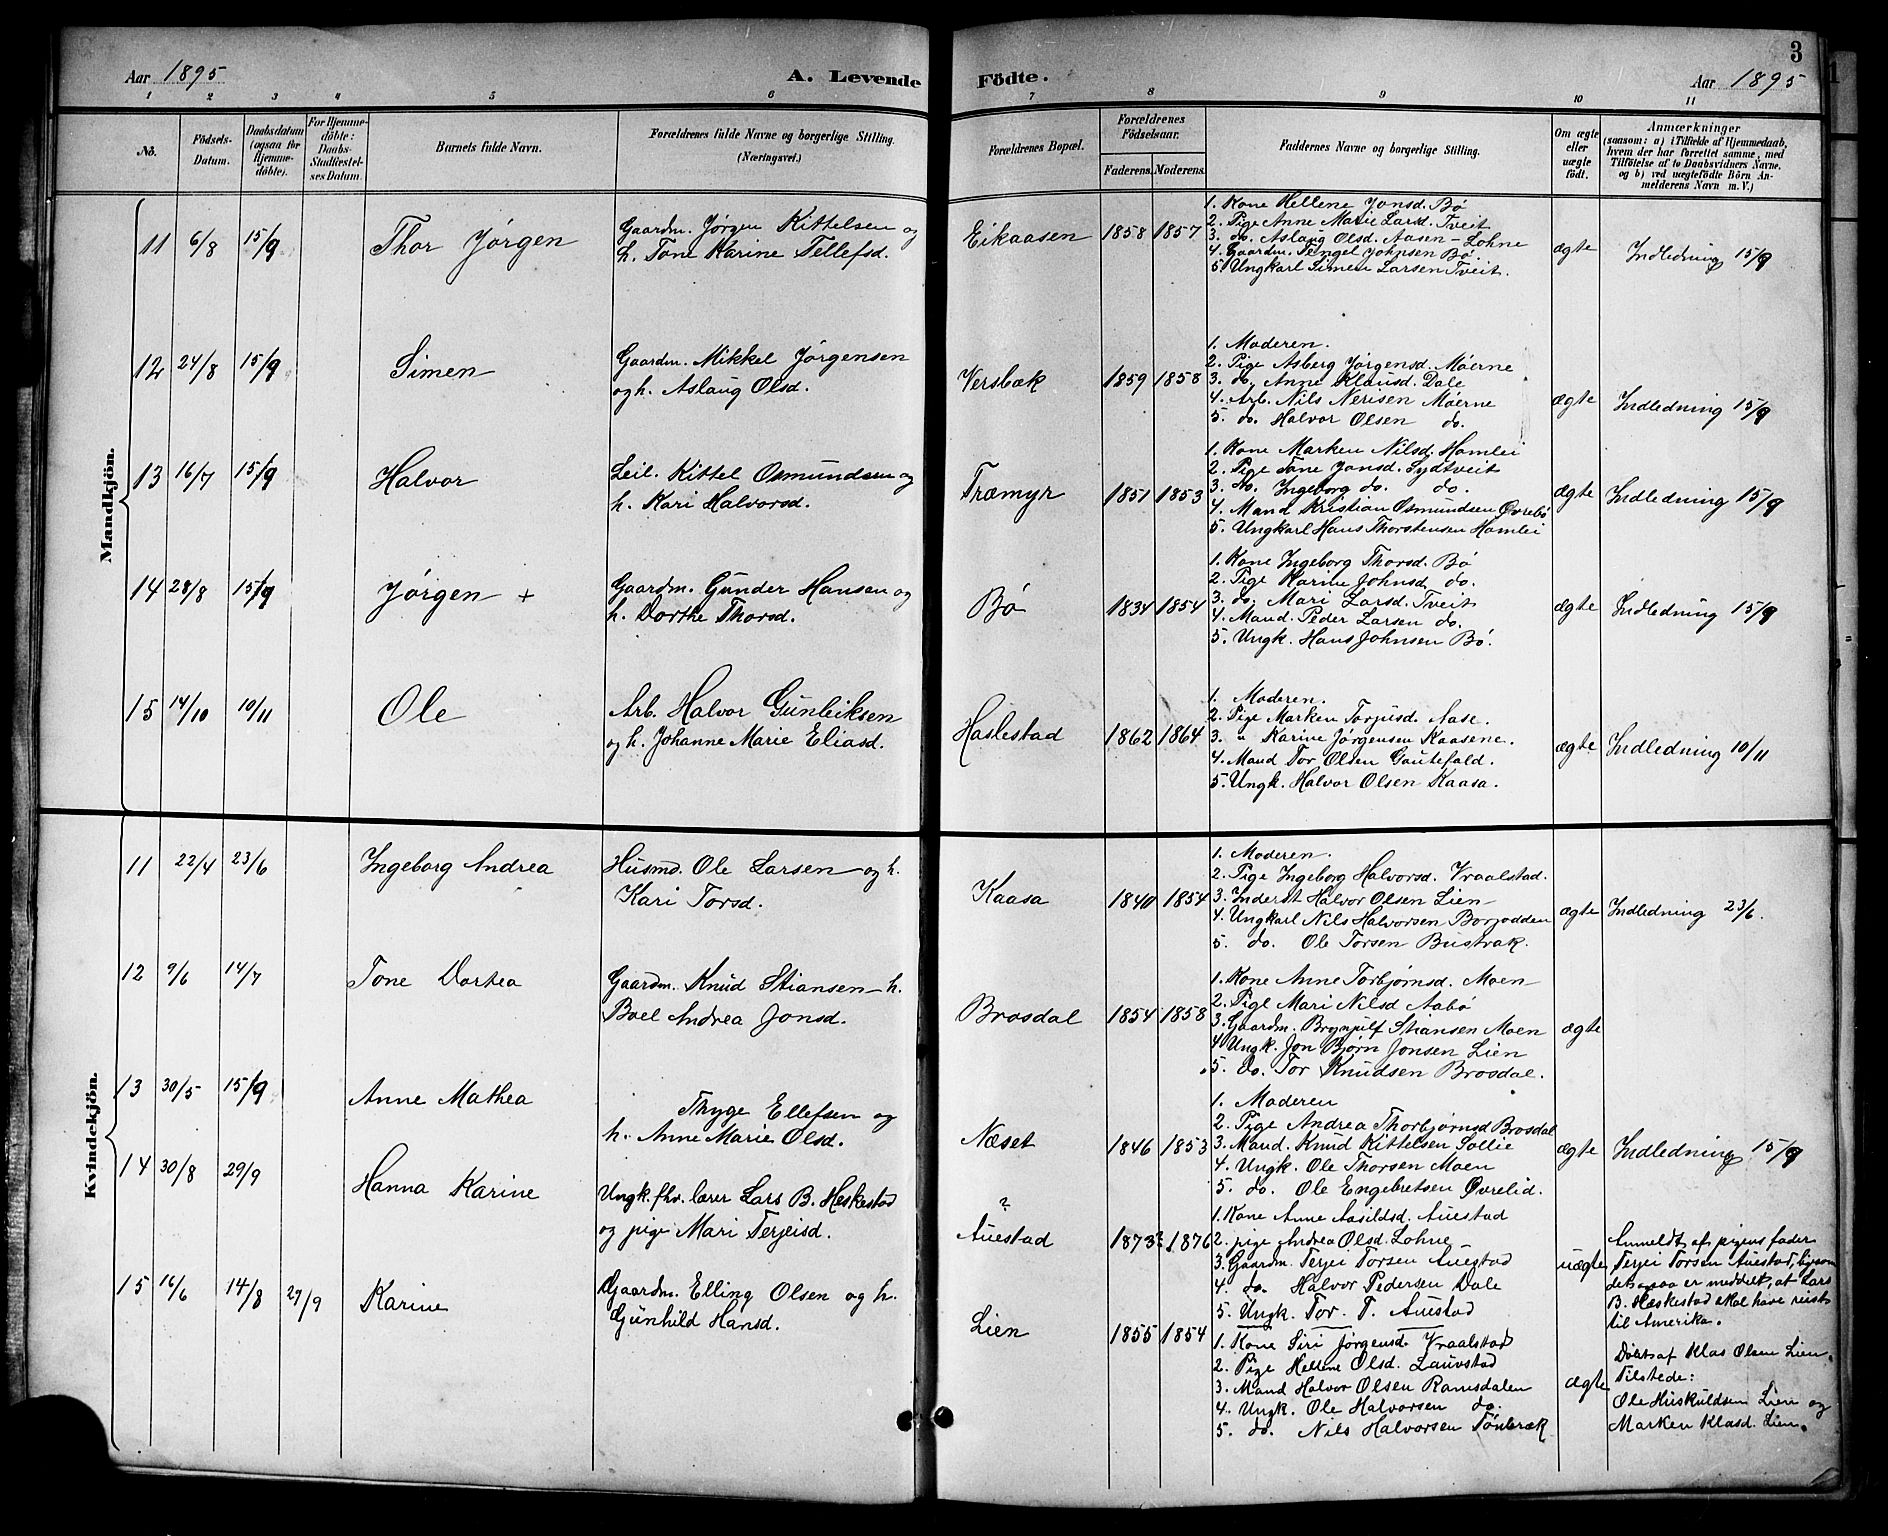 Aar 1895
A. Levende
Födte.
Aar 1895
3
1 2 3 4 5 6 7 8 9 10 11
Nô.
Födsels-Datum.
Daabsdatum (ogsaa for Hjemmedöbte).
For Hjemmedöbte: Daabs-Stadfestelses Datum.
Barnets fulde Navn.
Forældrenes fulde Navne og borgerlige Stilling. (Næringsvei.)
Forældrenes Bopæl.
Forældrenes Födselsaar.
Faderens. Moderens.
Faddernes Navne og borgerlige Stilling.
Om ægte eller uægte födt.
Anmærkninger
(saasom: a) i Tilfælde af Hjemmedaab, hvem der har forrettet samme, med Tilföielse af to Daabsvidners Navne, og b) ved uægtefödte Börn Anmelderens Navn m. V.)
Mandkjön.
11 6/8 15/9 Thor Jørgen
Gaardm. Jørgen Kittelsen og
h. Tone Karine Tellefsd.
Eikaasen 1858 1857
1. Kone Hellene Jonsd. Bø
2. Pige Anne Marie Larsd. Tveit
3. do. Aslaug Olsd. Aasen-Lohne
4. Gaardm. Tengel Johnsen Bø.
5 Ungkarl Simen Larsen Tveit.
ægte Indledning 15/9
12 24/8 15/9 Simen
Gaardm. Mikkel Jørgensen
og h. Aslaug Olsd.
Versbæk 1859 1858
1. Moderen.
2. Pige Asberg Jørgensd. Møerne
3. do. Anne Klausd. Dale
4. Arb. Nils Nerisen Møerne
5. do. Halvor Olsen do.
ægte Indledning 15/9
13 16/7 15/9 Halvor
Leil. Kittel Osmundsen og
h. Kari Halvorsd.
Træmyr 1851 1853
1. Kone Marken Nilsd. Hamlei
2. Pige Tone Jonsd. Sydtveit
3. do. Ingeborg do. do.
4. Mand Kristian Osmundsen Øvrebø
5. Ungkarl Hans Thorstensen Hamlei
ægte Indledning 15/9
14 28/8 15/9 Jørgen +
Gaardm. Gunder Hansen og
h. Dorthe Thorsd.
Bø 1834 1854
1. Kone Ingeborg Thorsd. Bø
2. Pige Karine Johnsd do.
3. do. Mari Larsd. Tveit
4. Mand. Peder Larsen do.
5. Ungk. Hans Johnsen Bø.
ægte Indledning 15/9
15 14/10 10/11 Ole
Arb. Halvor Gunleiksen
og h. Johanne Marie Eliasd.
Haslestad 1862 1864
1. Moderen.
2. Pige Marken Torjusd. Aase.
3. " Karine Jørgensen Kaasene.
4. Mand Tor Olsen Gautefald.
5. Ungk. Halvor Olsen Kaasa.
ægte Indledning 10/11
Kvindekjön.
11 22/4 23/6 Ingeborg Andrea
Husmd. Ole Larsen og h.
Kari Torsd.
Kaasa 1840 1854
1. Moderen.
2. Pige Ingeborg Halvorsd. Vraalstad.
3. Inderst Halvor Olsen Lien
4. Ungkarl Nils Halvorsen Borjodden
5. do. Ole Torsen Bustrak.
ægte Indledning 23/6.
12 9/6 14/7 Tone Dortea
Gaardm. Knud Stiansen h.
Boel Andrea Jonsd.
Brosdal 1854 1858
1. Kone Anne Torbjørnsd. Moen
2. Pige Mari Nilsd Aabø
3. Gaardm. Brynjulf Stiansen Moen
4 Ungk. Jon Bjørn Jonsen Lien
5. do. Tor Knudsen Brosdal.
ægte
13 30/5 15/9 Anne Mathea
Thyge Ellefsen og
h. Anne Marie Olsd.
Næset 1846 1853
1. Moderen
2. Pige Andrea Thorbjørnsd Brosdal
3. Mand. Knud Kittelsen Sollie
4. Ungk. Ole Thorsen Moen
5. do. Ole Engebretsen Øvrelid.
ægte Indledning 15/9
14 30/8 29/9 Hanna Karine
Ungk. fhv. lærer Lars B. Heskestad
og pige Mari Terjeisd.
?
Auestad 1873? 1876
1. Kone Anne Aasildsd. Auestad
2. pige Andrea Olsd. Lohne
3. Gaardm. Terjei Torsen Auestad
4. do. Halvor Pedersen Dale
5. Ungk. Tor. T. Auestad
uægte
Anmeldt af pigens fader
Terjei Torsen Auestad, ligesom
det ogsaa er meddelt, at Lars
B. Heskestad skal have reist
til Amerika.
15 16/6 14/8 29/9 Karine
Gaardm. Elling Olsen og h.
Gunhild Hansd.
Lien 1855 1854
1. Kone Siri Jørgensd. Vraalstad
2. Pige Hellene Olsd. Lauvstad
3. Mand Halvor Olsen Ramsdalen
4. Ungk. Ole Halvorsen do.
5. do. Nils Halvorsen Tønbræk
ægte
Døbt af Klas Olsen Lien.
Tilstede:
Ole Huskuldsen Lien og
Marken Klasd. Lien.